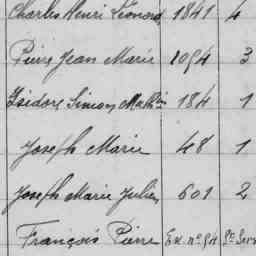 Charles Henri Léonard 1841 4
Pierre Jean Marie 1094 3
Isidore Simon Mathin 184 1
Joseph Marie 48 1
Joseph Marie Julien 601 2
François Pierre Ex. n° 94